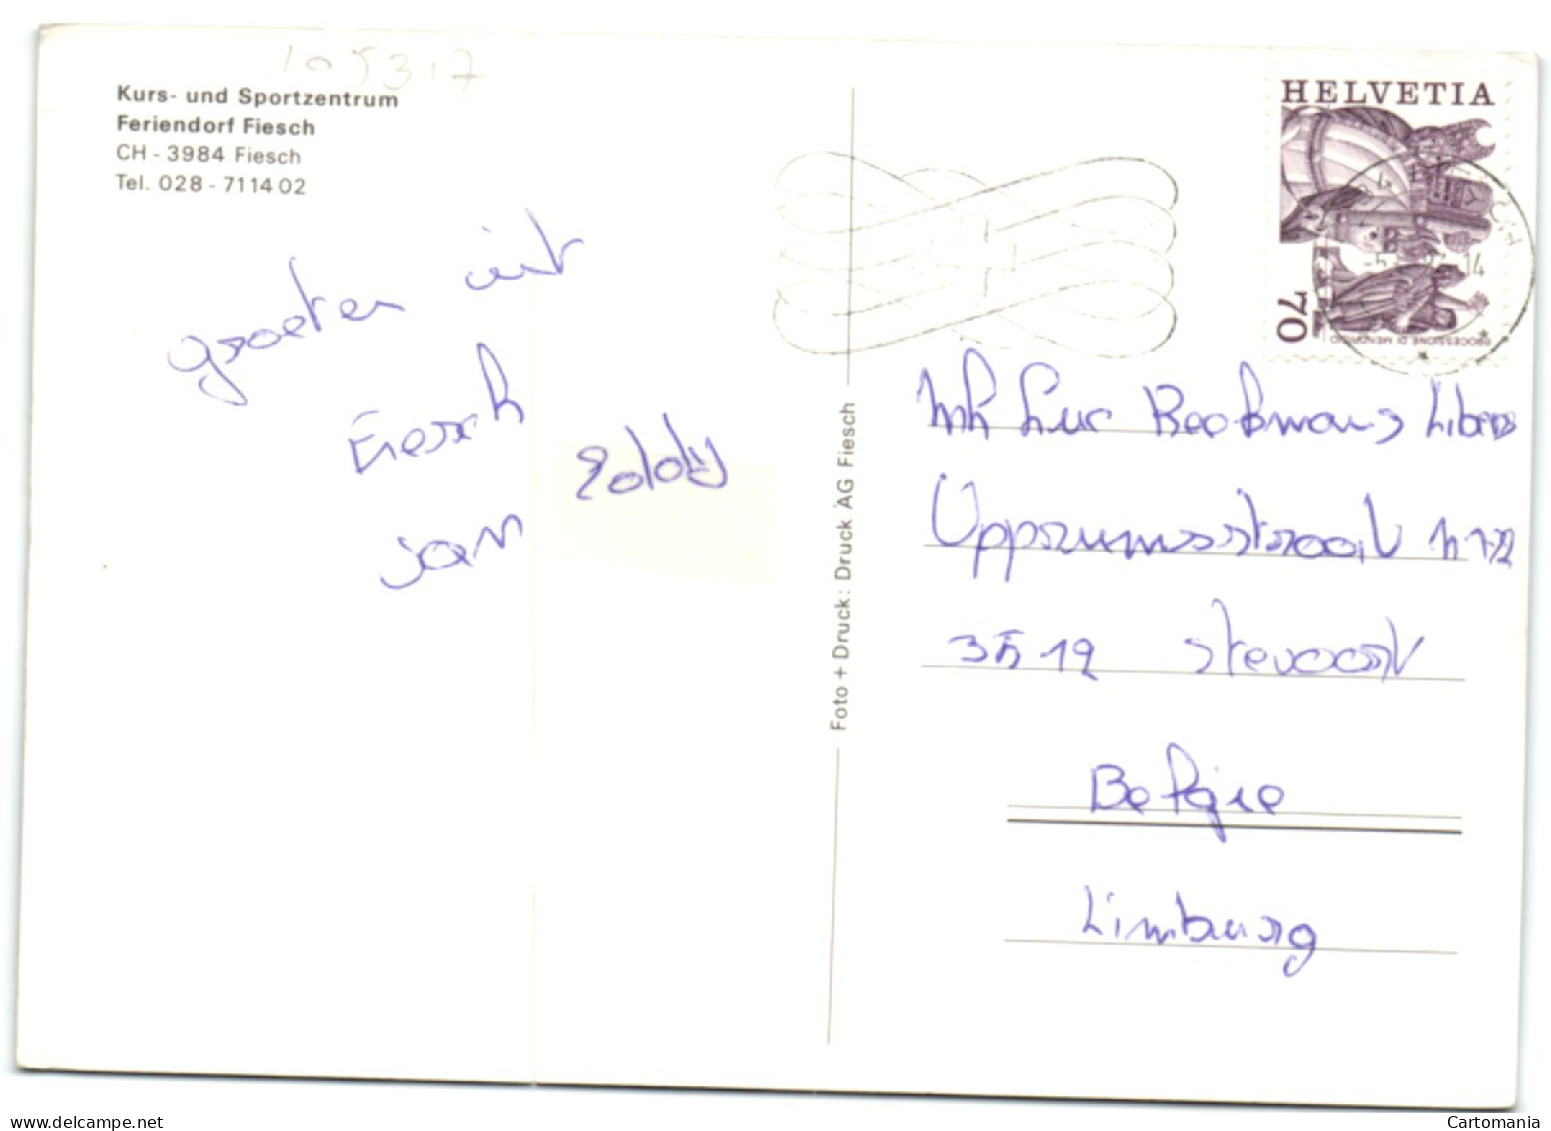 105317
Kurs- und Sportzentrum
Feriendorf Fiesch
CH - 3984 Fiesch
Tel. 028 - 71 14 02
groeten uit
Fiesch
Eddy
jan
Foto + Druck: Druck AG Fiesch
HELVETIA
70
PROCESSIONE DI MENDRISIO
14
Luc Beckmans
3512 Stevoort
Belgie
Limburg
delcampe.net
Cartomania